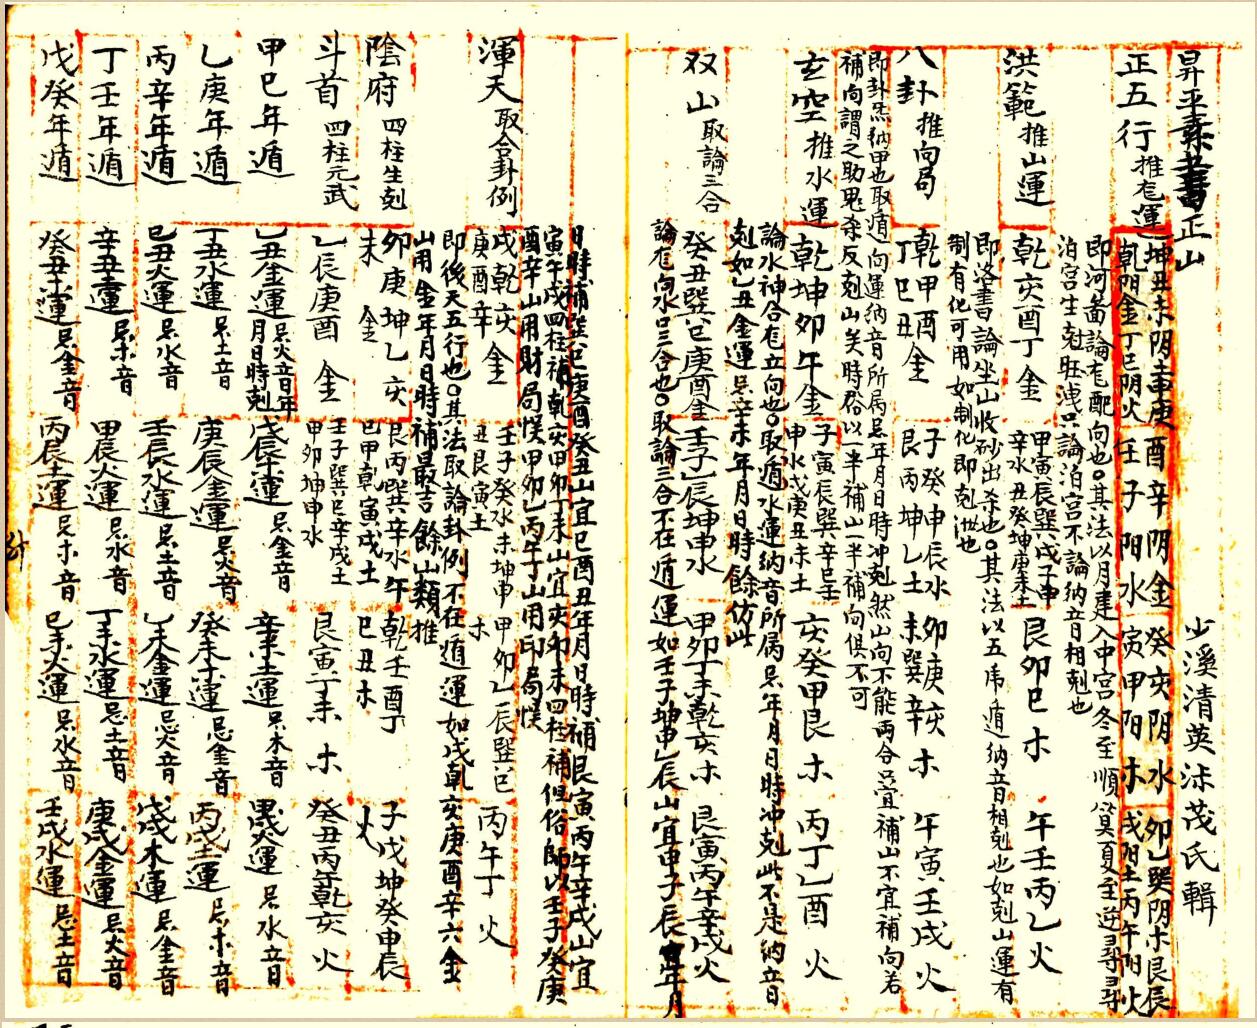 昇平秦書正山 少溪清英沫茂氏輯
正五行 推龙運
坤丑未阴土 庚酉辛阴金 癸亥阴水 卯乙巽阴木 艮辰
乾阳金 丁巳阴火 壬子阳水 寅甲阳木 戌阳土 丙午阳火
即河畨論龙配向也。其法以月建入中宫冬至順筭夏至逆尋尋
泊宫生尅旺洩只論泊宫不論納音相尅也
洪範 推山運
乾亥酉丁金 甲寅辰巽戌子申辛水 丑癸坤庚未土 艮卯巳木 午壬丙乙火
即洛書論坐山收砂出杀也。其法以五虎遁納音相尅也如尅山運有
制有化可用如制化即尅泄也
八卦 推向局
乾甲酉金 丁巳丑 子癸申辰水 艮丙坤乙土 卯庚亥未巽辛木 午寅壬戌火
即卦炁納甲也取遁向運納音所属忌年月日時冲尅然山向不能両合并宜補山不宜補向若
補向謂之助鬼杀反尅山矣時俗以一半補山一半補向俱不可
玄空 推水運
乾坤卯午金 子寅辰巽辛巳 申水 戊庚丑未土 亥癸甲艮木 丙丁乙酉火
論水神合龙立向也。取遁水運納音所属忌年月日時冲尅此不是納音
尅如乙丑金運忌辛未年月日時餘仿此
双山 取論三合
癸丑巽巳庚酉金 壬子乙辰坤申水 甲卯丁未乾亥木 艮寅丙午辛戌火
論龙向水只三合也。取論三合不在遁運如壬子坤申乙辰山宜申子辰年月
日時補巽巳庚酉癸丑山宜巳酉丑年月日時補艮寅丙午辛戌山宜
寅午戌四柱補乾亥甲卯丁未山宜亥卯未四柱補但俗師以壬子癸庚
酉辛山用財局悮甲卯乙丙午丁山用印局悮
渾天 取合卦例
戌乾亥庚酉辛金 壬子癸水 未坤申丑艮寅土 甲卯乙辰巽巳木 丙午丁火
即後天五行也。其法取論卦例不在遁運如戌乾亥庚酉辛六金
山用金年月日時補最吉餘山類推
陰府 四柱生尅
卯庚坤乙亥未金 艮丙巽辛水 巳甲乾寅戌土 午乾壬酉丁巳丑木 子戊坤癸申辰火
斗首 四柱元武
乙辰庚酉金 壬子巽巳辛戌土 甲卯坤申水 艮寅丁未木 癸丑丙午乾亥火
甲己年遁 乙丑金運忌火音年月日時尅 戊辰木運忌金音 辛未土運忌木音 甲戌火運忌水音
乙庚年遁 丁丑水運忌土音 庚辰金運忌火音 癸未木運忌金音 丙戌土運忌木音
丙辛年遁 己丑火運忌水音 壬辰水運忌土音 乙未金運忌火音 戊戌木運忌金音
丁壬年遁 辛丑土運忌木音 甲辰火運忌水音 丁未水運忌土音 庚戌金運忌火音
戊癸年遁 癸丑木運忌金音 丙辰土運忌木音 己未火運忌水音 壬戌水運忌土音